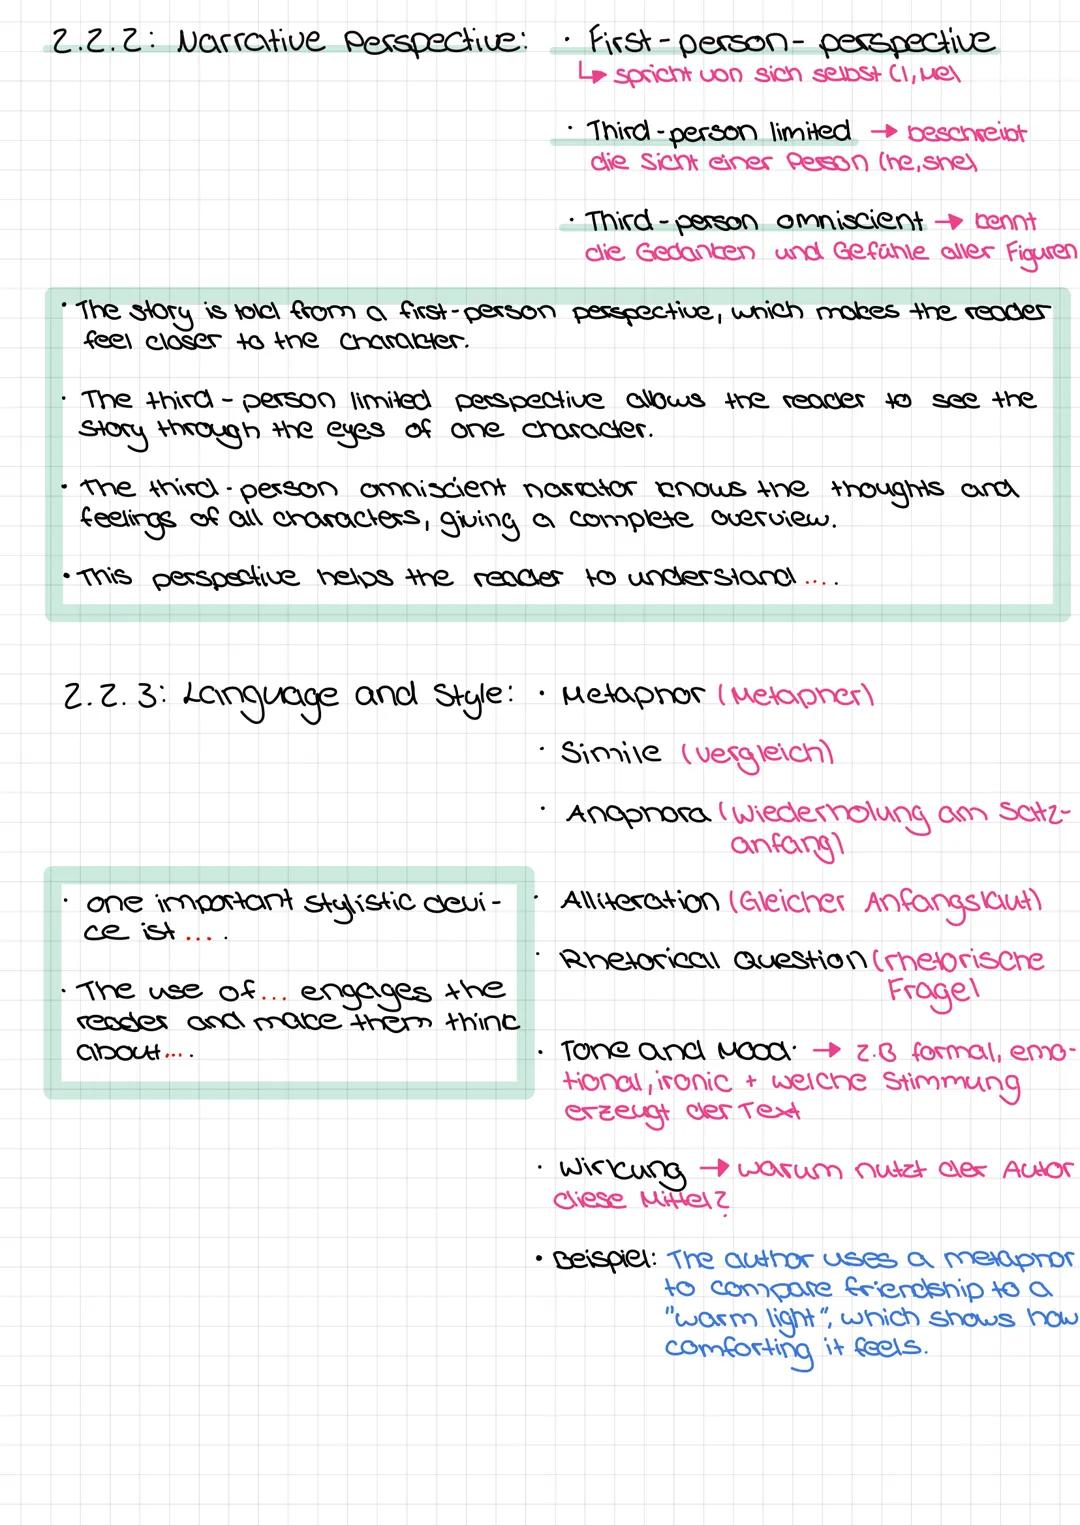 2.2.2: Narrative Perspective: · First-person-perspective
↳ spricht von sich selbst (I, Me)
· Third-person limited → beschreibt
die Sicht einer Person (he, she)
· Third-person omniscient → kennt
die Gedanken und Gefühle aller Figuren
· The story is told from a first-person perspective, which makes the reader
feel closer to the charakter.
· The third-person limited perspective allows the reader to see the
story through the eyes of one character.
· The third-person omniscient narrator knows the thoughts and
feelings of all characters, giving a complete overview.
• This perspective helps the reader to understand ....
2.2.3: Language and Style: · Metaphor (Metapher)
· Simile (vergleich)
· Anaphora (Wiederholung am Satz-
anfang)
· one important stylistic devi-
ce ist ... .
· The use of... engages the
reader and make them think
about... .
· Alliteration (Gleicher Anfangslaut)
· Rhetorical Question (rhetorische
Frage)
· Tone and Mood: → z.B formal, emo-
tional, ironic + welche Stimmung
erzeugt der Text
· Wirkung → warum nutzt der Autor
diese Mittel?
• Beispiel: The author uses a metaphor
to compare friendship to a
"warm light", which shows how
comforting it feels.